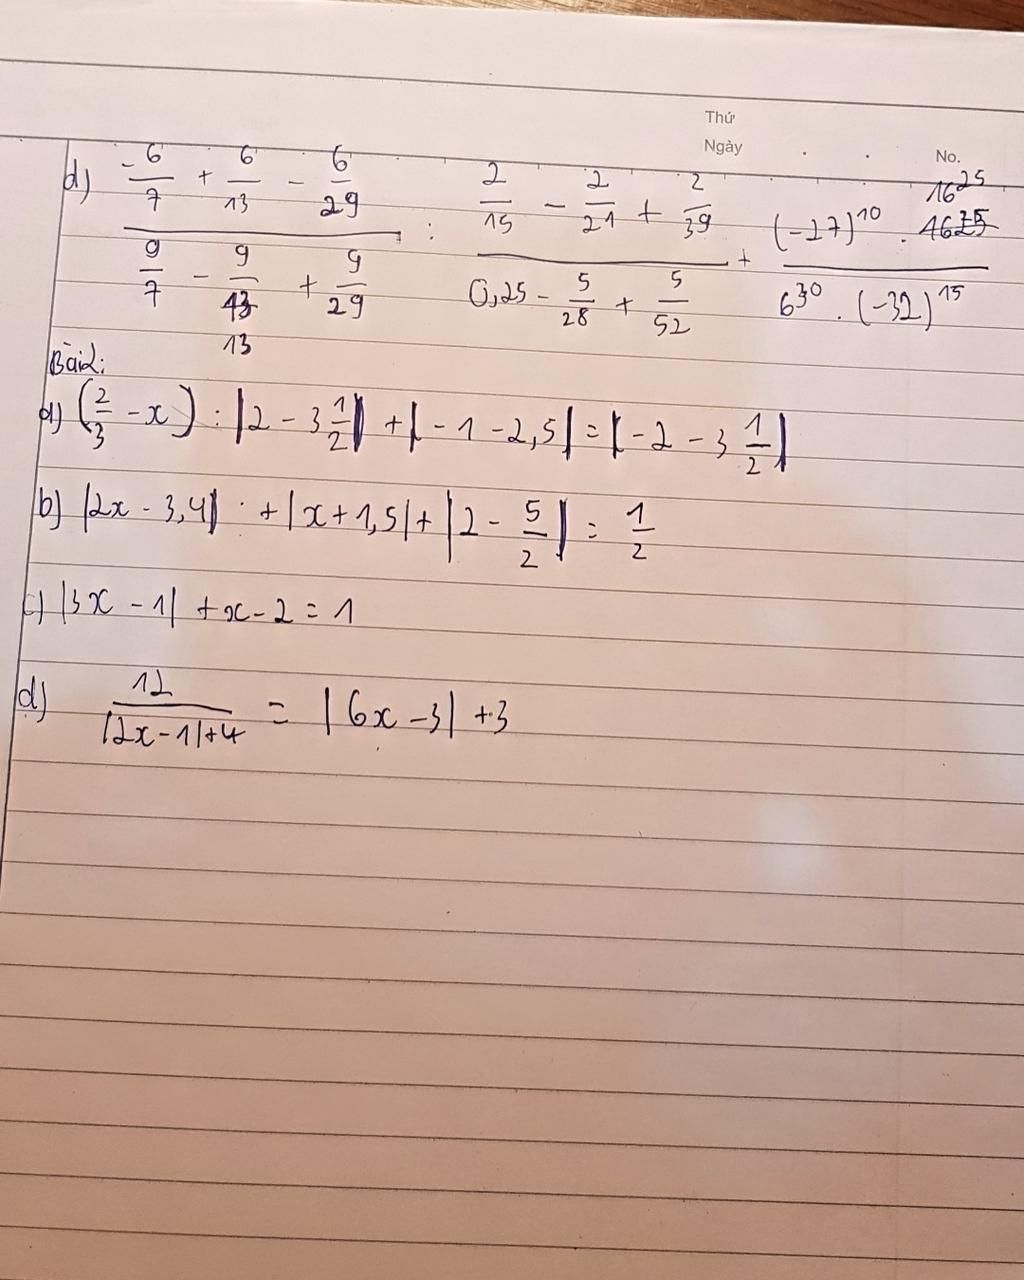 Thứ
Ngày
No.
d) (-6/7 + 6/13 - 6/29) / (9/7 - 9/13 + 9/29) : (2/15 - 2/21 + 2/39) / (0,25 - 5/28 + 5/52) + ((-27)^10 . 16^25) / (6^30 . (-32)^15)
Bài2:
a) (2/3 - x) : |2 - 3 1/2| + |-1 - 2,5| = |-2 - 3 1/2|
b) |2x - 3,4| + |x + 1,5| + |2 - 5/2| = 1/2
c) |3x - 1| + x - 2 = 1
d) 12 / (|2x - 1| + 4) = |6x - 3| + 3